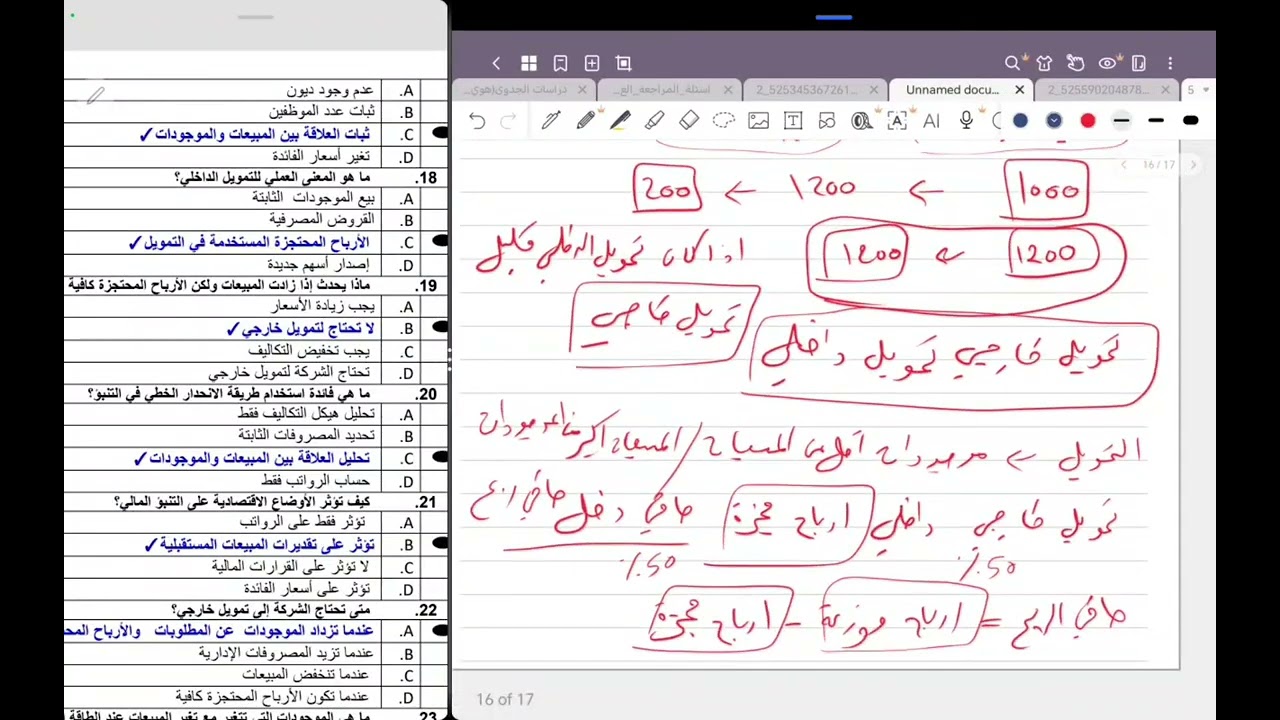 عدم وجود ديون .A
ثبات عدد الموظفين .B
ثبات العلاقة بين المبيعات والموجودات ✓ .C
تغير أسعار الفائدة .D
18. ما هو المعنى العملي للتمويل الداخلي؟
بيع الموجودات الثابتة .A
القروض المصرفية .B
الأرباح المحتجزة المستخدمة في التمويل ✓ .C
إصدار أسهم جديدة .D
19. ماذا يحدث إذا زادت المبيعات ولكن الأرباح المحتجزة كافية
يجب زيادة الأسعار .A
لا تحتاج لتمويل خارجي ✓ .B
يجب تخفيض التكاليف .C
تحتاج الشركة لتمويل خارجي .D
20. ما هي فائدة استخدام طريقة الانحدار الخطي في التنبؤ؟
تحليل هيكل التكاليف فقط .A
تحديد المصروفات الثابتة .B
تحليل العلاقة بين المبيعات والموجودات ✓ .C
حساب الرواتب فقط .D
21. كيف تؤثر الأوضاع الاقتصادية على التنبؤ المالي؟
تؤثر فقط على الرواتب .A
تؤثر على تقديرات المبيعات المستقبلية ✓ .B
لا تؤثر على القرارات المالية .C
تؤثر على أسعار الفائدة .D
22. متى تحتاج الشركة إلى تمويل خارجي؟
عندما تزداد الموجودات عن المطلوبات والأرباح المحت .A
عندما تزيد المصروفات الإدارية .B
عندما تنخفض المبيعات .C
عندما تكون الأرباح المحتجزة كافية .D
23. ما هي الموجودات التي تتغير مع تغير المبيعات عند الطاقة
دراسات الجدوى(هوي...
اسئلة_المراجعة_الع...
2_525345367261...
Unnamed docu...
2_525590204878...
5
16/17
1000 ← 1200 ← 200
1200 ← 1200
اذا كان تمويل الداخلي قليل
تمويل خارجي
تمويل خارجي تمويل داخلي
التمويل ← موجودات اقل من المبيعات / المبيعات اكبر من الموجودات
تمويل خارجي داخلي ارباح محتجزة صافي دخل صافي ربح
50% 50%
صافي الربح = ارباح موزعة - ارباح محتجزة
16 of 17